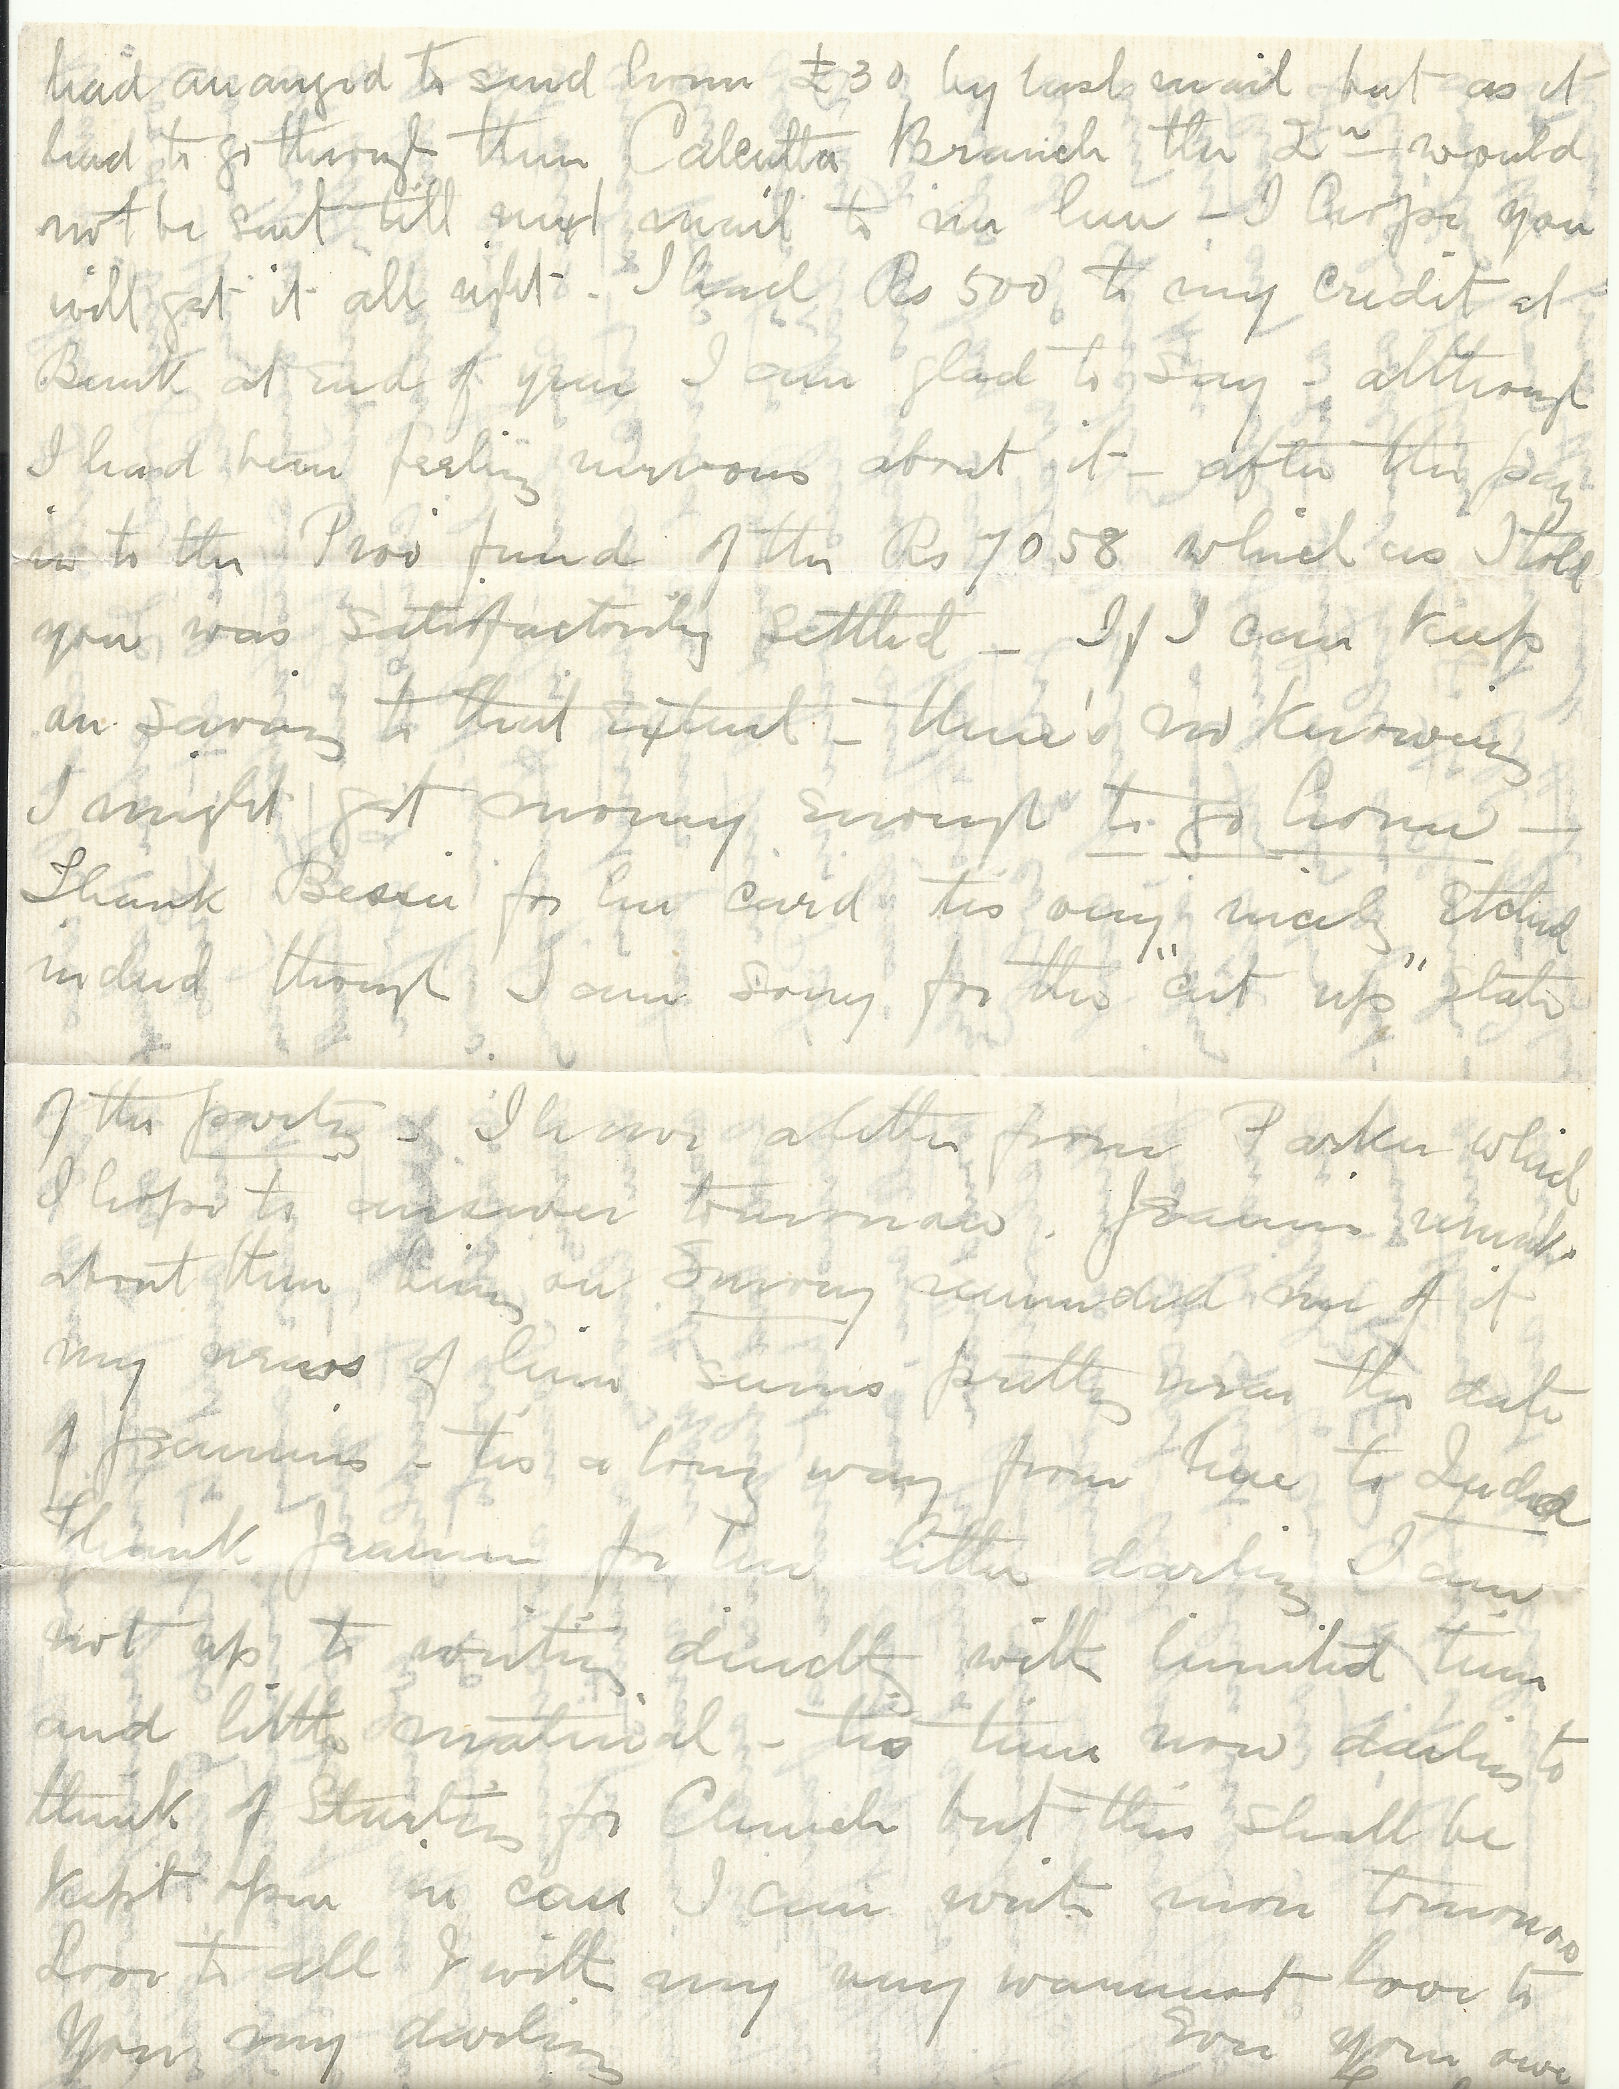 had arranged to send home £30 by last mail but as it
had to go through their Calcutta Branch the 2ⁿ would
not be sent till next mail to me here - I hope you
will get it all right - I had Rs 500 to my credit at
Bank at end of year I am glad to say - although
I had been feeling nervous about it - after the pay
in to the Prov fund of the Rs 7058 which as I told
you was satisfactorily settled - If I can keep
on saving to that extent - there's no knowing
I might get money enough to go home -
Thank Bessie for her card tis very nicely Etched
indeed though I am sorry for the "cut up" state
of the party - I have a letter from Parker which
I hope to answer tomorrow. Jeannie's remark
about them being on Survey reminded me of it
my news of him seems pretty near the date
of Jeannie's - tis a long way from here to
Thank Jeannie for her letter darling I am
not up to writing directly with limited time
and little material - tis time now darling to
think of Starting for Church but this shall be
kept open in case I can write more tomorrow
Love to all & with my very warmest love to
You my darling Ever Your own